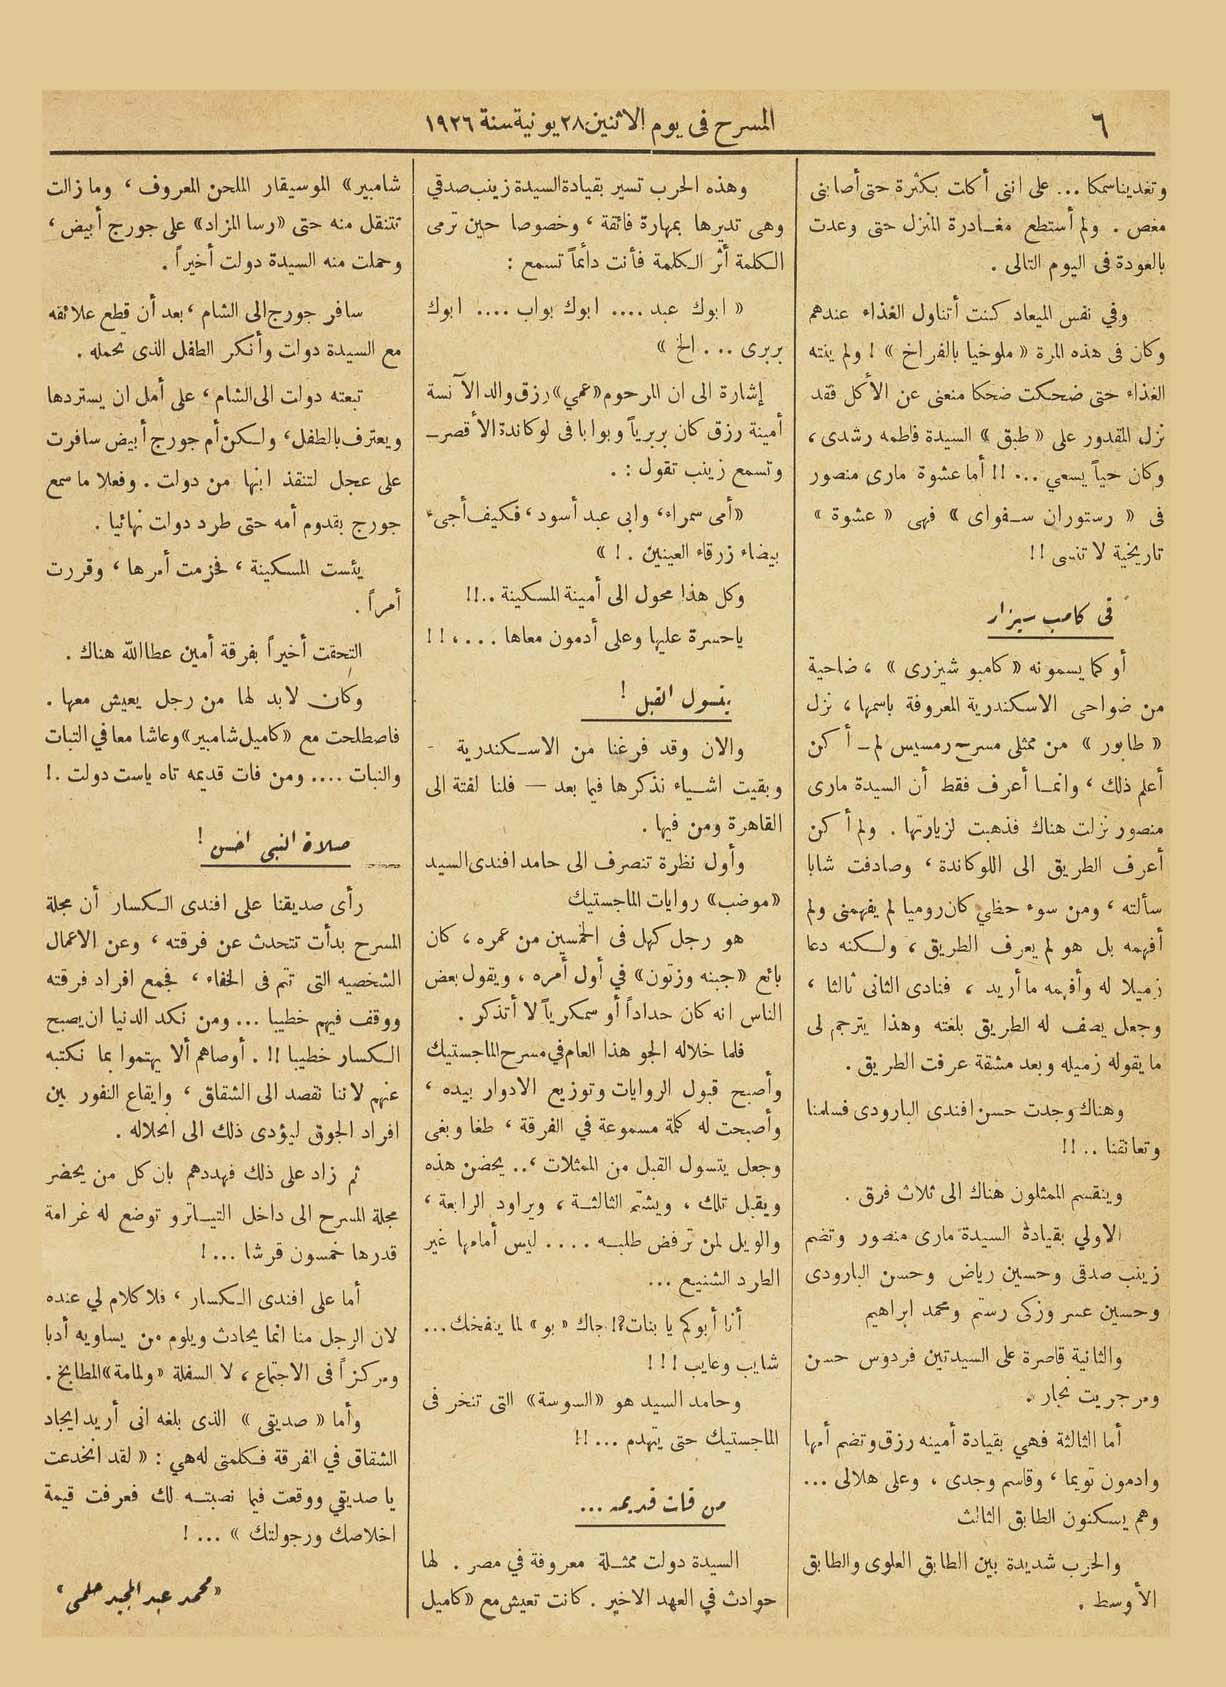 ٦
المسرح فى يوم الاثنين ٢٨ يونية سنة ١٩٢٦
وتغديناسمكا ... على اننى أكلت بكثرة حتى أصابنى
مغص . ولم أستطع مغــادرة المنزل حتى وعدت
بالعودة فى اليوم التالى .
وفي نفس الميعاد كنت أتناول الغذاء عندهم
وكان فى هذه المرة « ملوخيا بالفراخ » ! ولم ينته
الغذاء حتى ضحكت ضحكا منعنى عن الأكل فقد
نزل المقدور على « طبق » السيدة فاطمه رشدى ،
وكان حياً يسعي ... !! أما عشوة مارى منصور
فى « رستوران ســفواى » فهى « عشوة »
تاريخية لا تنسى !!
فى كامب سيزار
أو كما يسمونه « كامبو شيزرى » ، ضاحية
من ضواحى الاسكندرية المعروفة باسمها ، نزل
« طابور » من ممثلى مسرح رمسيس لم ــ أكن
أعلم ذلك ، وانمــا أعرف فقط أن السيدة مارى
منصور نزلت هناك فذهبت لزيارتها . ولم أكن
أعرف الطريق الى اللوكاندة ، وصادفت شابا
سألته ، ومن سوء حظي كان روميا لم يفهمنى ولم
أفهمه بل هو لم يعرف الطريق ، ولــكنه دعا
زميلا له وأفهمه ما أريد ، فنادى الثانى ثالثا ،
وجعل يصف له الطريق بلغته وهذا يترجم لى
ما يقوله زميله وبعد مشقة عرفت الطريق .
وهناك وجدت حسن افندى البارودى فسلمنا
وتعانقنا .. !!
وينقسم الممثلون هناك الى ثلاث فرق .
الاولي بقيادة السيدة مارى منصور وتضم
زينب صدقى وحسين رياض وحسن البارودى
وحسين عسر وزكى رستم ومحمد ابراهيم
والثانية قاصرة على السيدتين فردوس حسن
ومرجريت نجار .
أما الثالثة فهي بقيادة أمينه رزق وتضم أمها
وادمون تويما ، وقاسم وجدى ، وعلى هلالى ...
وهم يسكنون الطابق الثالث
والحرب شديدة بين الطابق العلوى والطابق
الأوسط .
وهذه الحرب تسير بقيادة السيدة زينب صدقي
وهى تديرها بمهارة فائقة ، وخصوصا حين ترمى
الــكلمة أثر الــكلمة فأنت دائماً تسمع :
« ابوك عبد .... ابوك بواب .... ابوك
بربرى ... الخ »
إشارة الى ان المرحوم «عمي» رزق والد الآنسة
أمينة رزق كان بربرياً وبوابا فى لوكاندة الأقصر ــ
وتسمع زينب تقول : .
«أمى سمراء ، وابى عبد أسود ، فكيف أجىء
بيضاء زرقاء العينين . ! »
وكل هذا محول الى أمينة المسكينة ..!!
ياحسرة عليها وعلى أدمون معاها ....!!
يتسول القبل !
والان وقد فرغنا من الاســكندرية -
وبقيت اشــياء نذكرها فيما بعد — فلنا لفتة الى
القاهرة ومن فيها .
وأول نظرة تنصرف الى حامد افندى السيد
«موضب» روايات الماجستيك
هو رجل كهل فى الخمسين من عمره ، كان
بائع «جبنه وزتون» في أول أمره ، ويقول بعض
الناس انه كان حداداً أو سمكرياً لا أتذكر .
فلما خلاله الجو هذا العام في مسرح الماجستيك
وأصبح قبول الروايات وتوزيع الادوار بيده ،
وأصبحت له كلمة مسموعة في الفرقة ، طغا وبغى
وجعل يتسول القبل من الممثلات ،.. يحضن هذه
ويقبل تلك ، ويشتم الثالثــة ، ويراود الرابعة ،
والويل لمن ترفض طلبــه .... ليس أمامها غير
الطرد الشنيع ...
أنا أبوكم يا بنات؟! جاك « بو » لما ينفخك ...
شايب وعايب !!!
وحامد السيد هو «السوسة» التى تنخر فى
الماجستيك حتى يتهدم ... !!
من فات قديمه ...
السيدة دولت ممثــلة معروفة في مصر . لها
حوادث في العهد الاخير . كانت تعيش مع «كاميل
شامبير» الموسيقار الملحن المعروف ، وما زالت
تتنقل منه حتى «رسا المزاد» على جورج أبيض ،
وحملت منه السيدة دولت أخيراً .
سافر جورج الى الشام ، بعد أن قطع علائقه
مع السيدة دولت وأنكر الطفل الذى تحمله .
تبعته دولت الى الشام ، على أمل ان يستردها
ويعترف بالطفل ، ولــكن أم جورج أبيض سافرت
على عجل لتنقذ ابنها من دولت . وفعلا ما سمع
جورج بقدوم أمه حتى طرد دولت نهائيا .
يئست المسكينة ، فحزمت أمرها ، وقررت
أمراً .
التحقت أخيراً بفرقة أمين عطا الله هناك .
وكان لابد لها من رجل يعيش معها .
فاصطلحت مع «كاميل شامبير» وعاشا معا في التبات
والنبات .... ومن فات قديمه تاه ياست دولت .!
صلاة النبى اخسن !
رأى صديقنا على افندى الــكسار أن مجلة
المسرح بدأت تتحدث عن فرقته ، وعن الاعمال
الشخصيه التى تتم فى الخفاء ، فجمع افراد فرقته
ووقف فيهم خطيبا ... ومن نكد الدنيا ان يصبح
الــكسار خطيبا !! . أوصاهم ألا يهتموا بما نكتبه
عنهم لاننا نقصد الى الشقاق ، وايقاع النفور بين
افراد الجوق ليؤدى ذلك الى انحلاله .
ثم زاد على ذلك فهددهم بان كل من يحضر
مجلة المسرح الى داخل التيــاترو توضع له غرامة
قدرها خمسون قرشا ... !
أما على افندى الــكسار ، فلا كلام لي عنده
لان الرجل منا انما يحادث ويلوم من يساويه أدبا
ومركزاً فى الاجتماع ، لا السفلة « ولمامة» المطابخ .
وأما « صديقى » الذى بلغه انى أريد ايجاد
الشقاق في الفرقة فــكلمتى له هي : « لقد انخدعت
يا صديقي ووقعت فيما نصبتــه لك فعرفت قيمة
اخلاصك ورجولتك » ... !
«محمد عبد المجيد حلمى»